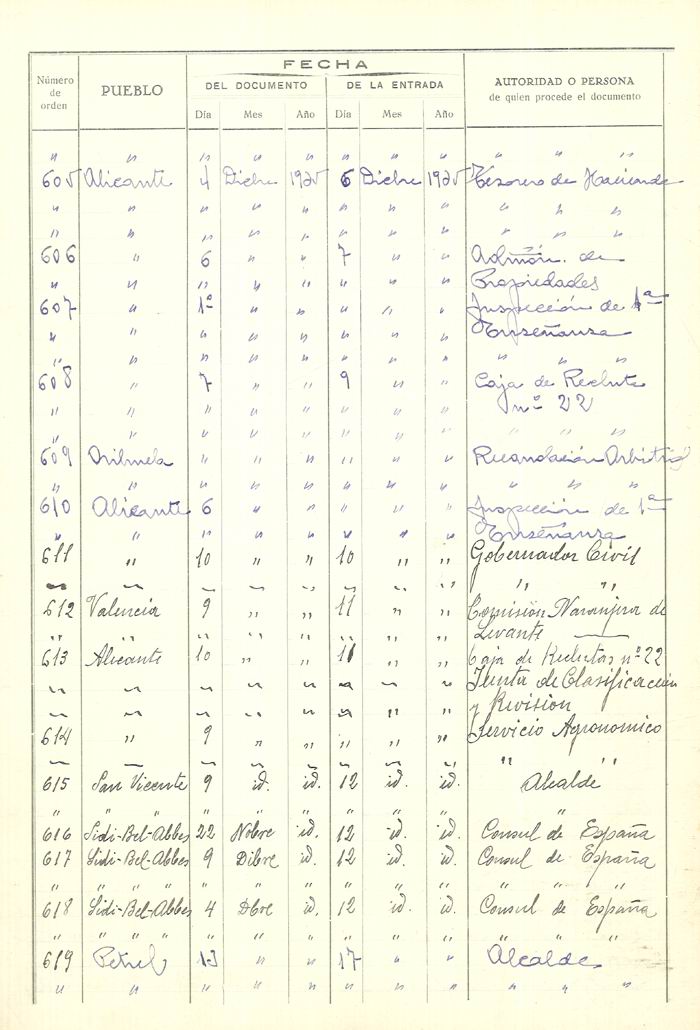 FECHA
Número de orden PUEBLO DEL DOCUMENTO DE LA ENTRADA AUTORIDAD O PERSONA de quien procede el documento
Día Mes Año Día Mes Año
" " " " " " " "
605 Alicante 4 Dicbre 1925 6 Dicbre 1925 Tesorero de Hacienda
" " " " " " " " " "
" " " " " " " "
606 " 6 " " 7 " " Admón. de
" " " " " " " " Propiedades
607 " 1º " " " " " Inspección de 1ª
" " " " " " " " Enseñanza
" " " " " " " " "
608 " 7 " " 9 " " Caja de Recluta
" " " " " " " " nº 22
" " " " " " " " " "
609 Orihuela " " " " " " Recaudación Arbitrios
" " " " " " " " " "
610 Alicante 6 " " " " " Inspección de 1ª
" " " " " " " " Enseñanza
611 " 10 " " 10 " " Gobernador Civil
" " " " " " " " " "
612 Valencia 9 " " 11 " " Comisión Naranjera de
" " " " " " " " Levante
613 Alicante 10 " " 11 " " Caja de Reclutas nº 22
" " " " " " " " Junta de Clasificación
" " " " " " " " y Revisión
614 " 9 " " " " " Servicio Agronomico
" " " " " " " " " "
615 San Vicente 9 id. id. 12 id. id. Alcalde
" " " " " " " " " "
616 Sidi-Bel-Abbes 22 Nobre id. 12 id. id. Consul de España
617 Sidi-Bel-Abbes 9 Dibre id. 12 id. id. Consul de España
" " " " " " " " " " "
618 Sidi-Bel-Abbes 4 Dbre id. 12 id. id. Consul de España
" " " " " " " " " " "
619 Petrel 13 " " 17 " " Alcalde
" " " " " " " " " " "